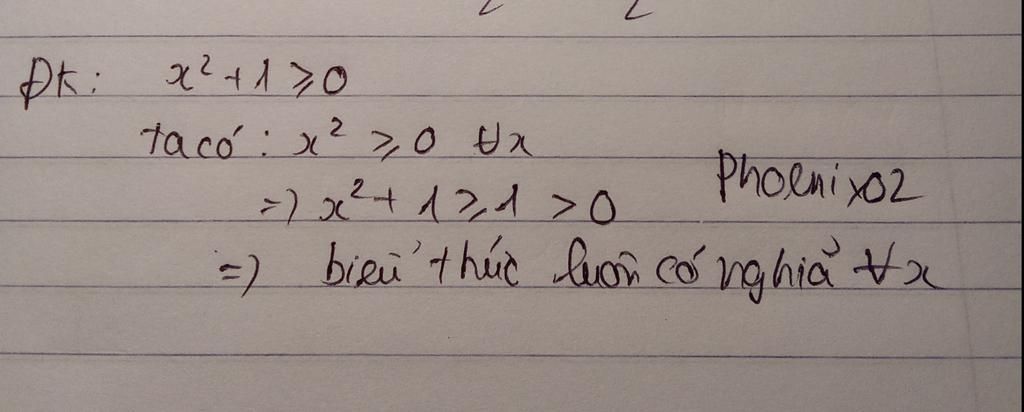 ĐK: x² + 1 ⩾ 0
ta có: x² ⩾ 0 ∀x
=> x² + 1 ⩾ 1 > 0
Phoenix02
=> biểu thức luôn có nghĩa ∀x